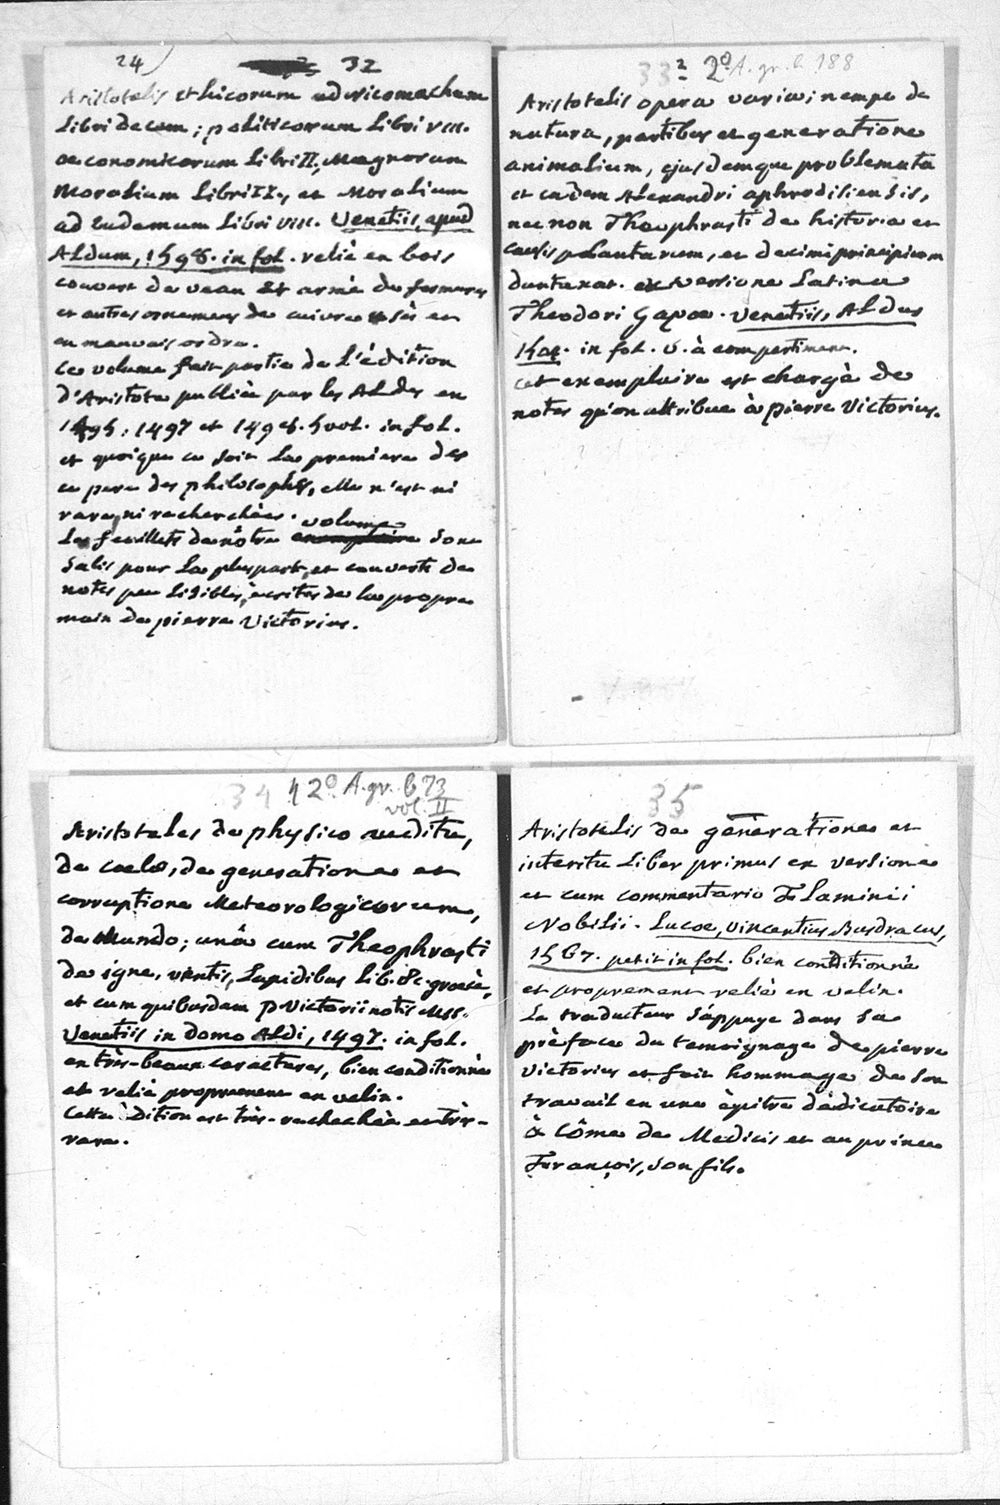 24) 32
Aristotelis Ethicorum ad nicomachum
Libri decem; politicorum Libri VIII.
œconomicorum Libri II, Magnorum
Moralium Libri II, et Moralium
ad Eudemum Libri VIII. Venetiis, apud
Aldum, 1498. in fol. relié en bois
couvert de veau et armé de fermures
et autres ornemens de cuivre en
en mauvais ordre.
Ce volume fait partie de L'édition
d'Aristote publiée par les Aldes en
1495, 1497 et 1498. 5 vol. in fol.
et quoique ce soit la premiere des
ce pere des philosophes, elle n'est ni
rare, ni recherchée.
Les feuillets de nôtre volume sont
salis pour la pluspart, et couverts de
notes peu lisibles, écrites de la propre
main de pierre Victorius.
33 2 2º A. gr. b 188
Aristotelis opera varia; nempe de
natura, partibus et generatione
animalium, ejusdemque problemata
et eadem Alexandri aphrodisiensis,
nec non Theophrasti de historia et
causis plantarum, et decimi principium
duntaxat. ex versione Latina
Theodori Gazæ. Venetiis, Aldus
1504. in fol. v. à compartimens.
cet exemplaire est chargé de
notes qu'on attribue à pierre Victorius.
34 2º A. gr. b 73
vol. II
Aristoteles de physico auditu,
de cœlo, de generatione et
corruptione Meteorologicorum,
de Mundo; unâ cum Theophrasti
de igne, ventis, Lapidibus Lib. &c. græcè,
et cum quibusdam P. Victorii notis Mss.
Venetiis in domo Aldi, 1497. in fol.
en très-beaux caracteres, bien conditionné
et relié proprement en velin.
Cette édition est très-recherchée et très-
rare.
35
Aristotelis de generatione et
interitu Liber primus ex versione
et cum commentario Flaminii
Nobilii. Lucæ, Vincentius Busdracus,
1567. petit in fol. bien conditionné
et proprement relié en velin.
Le traducteur s'appuye dans sa
préface du temoignage de pierre
Victorius et fait hommage de son
travail en une épitre dédicatoire
à Côme de Medicis et au prince
François, son fils.